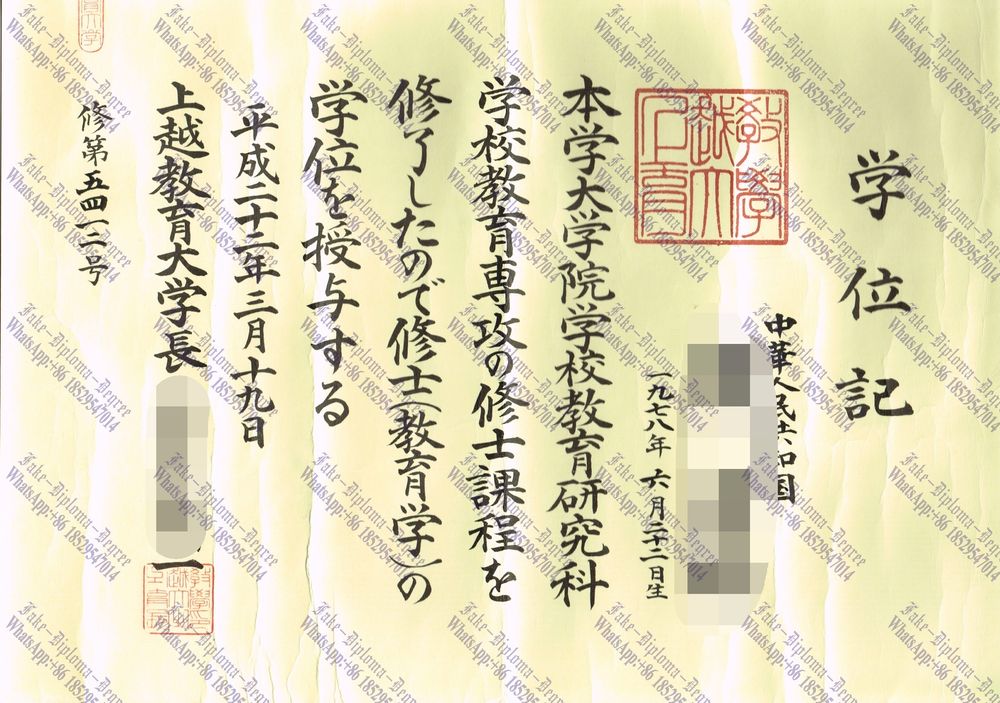 学位記
中華人民共和国
一九七八年 六月二十二日生
本学大学院学校教育研究科
学校教育専攻の修士課程を
修了したので修士(教育学)の
学位を授与する
平成二十二年三月十九日
上越教育大学長
一
修第五四一二号
Fake-Diploma-Degree
WhatsApp:+86 18529547014